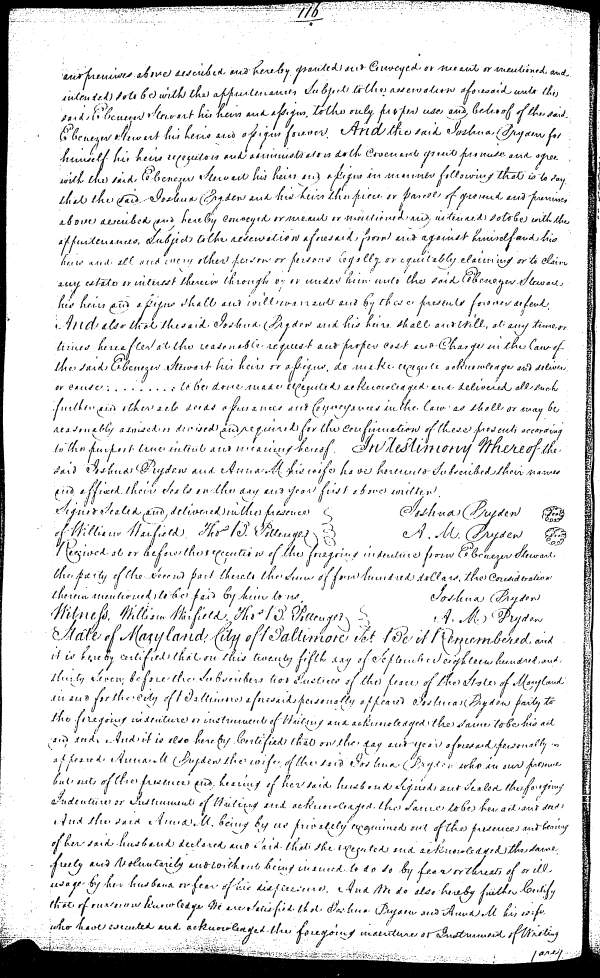 116
and premises above described and hereby granted and Conveyed or meant or mentioned and
intended so to be with the appurtenances Subject to the reservation aforesaid unto the
said Ebenezer Stewart his heirs and assigns, to the only proper use and behoof of the said
Ebenezer Stewart his heirs and assigns forever. And the said Joshua Dryden for
himself his heirs executors and administrators doth Covenant grant promise and agree
with the said Ebenezer Stewart his heirs and assigns in manner following that is to say
that the said Joshua Dryden and his heirs the piece or parcel of ground and premises
above described and hereby conveyed or meant or mentioned and intended so to be with the
appurtenances, Subject to the reservation aforesaid, from and against himself and his
heirs and all and every other person or persons legally or equitably claiming or to claim
any estate or interest therein through or under him unto the said Ebenezer Stewart
his heirs and assigns shall and will warrant and by these presents forever defend
And also that the said Joshua Dryden and his heirs shall and will, at any time or
times hereafter at the reasonable request and proper cost and Charge in the law of
the said Ebenezer Stewart his heirs or assigns, do make execute acknowledge and deliver
or cause . . . . . . . . to be done made executed acknowledged and delivered all such
further and other acts deeds assurances and Conveyances in the law as shall or may be
reasonably advised or devised and required for the confirmation of these presents according
to the purport true intent and meaning hereof. In Testimony Whereof the
said Joshua Dryden and Anna M his wife have hereunto Subscribed their names
and affixed their Seals on the day and year first above written.
Signed Sealed and delivered in the presence Joshua Dryden
of William Warfield, Thos B. Pottenger A. M. Dryden
Received at or before the execution of the foregoing indenture from Ebenezer Stewart
the party of the Second part thereto the Sum of four hundred dollars, the Consideration
therein mentioned to be paid by him to us, Joshua Dryden
Witness, William Warfield, Thos B. Pottenger A. M. Dryden
State of Maryland, City of Baltimore Sct. Be it Remembered and
it is hereby certified that on this twenty fifth day of September eighteen hundred and
thirty Seven, before the Subscribers two Justices of the peace of the State of Maryland
in and for the City of Baltimore aforesaid personally appeared Joshua Dryden party to
the foregoing indenture or instrument of Writing and acknowledged the same to be his act
and deed. And it is also hereby Certified that on the day and year aforesaid personally
appeared Anna M Dryden the wife of the said Joshua Dryden who in our presence
but out of the presence and hearing of her said husband Signed and Sealed the foregoing
Indenture or Instrument of Writing and acknowledged the Same to be her act and deed
And the said Anna M. being by us privately examined out of the presence and hearing
of her said husband declared and said that she executed and acknowledged the same
freely and Voluntarily and without being induced to do so by fear or threats of or ill
usage by her husband or fear of his displeasure. And We do also hereby further Certify
that of our own knowledge We are Satisfied that Joshua Dryden and Anna M his wife
who have executed and acknowledged the foregoing indenture or Instrument of Writing